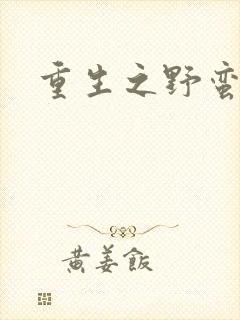 重生之野蛮
黄姜饭